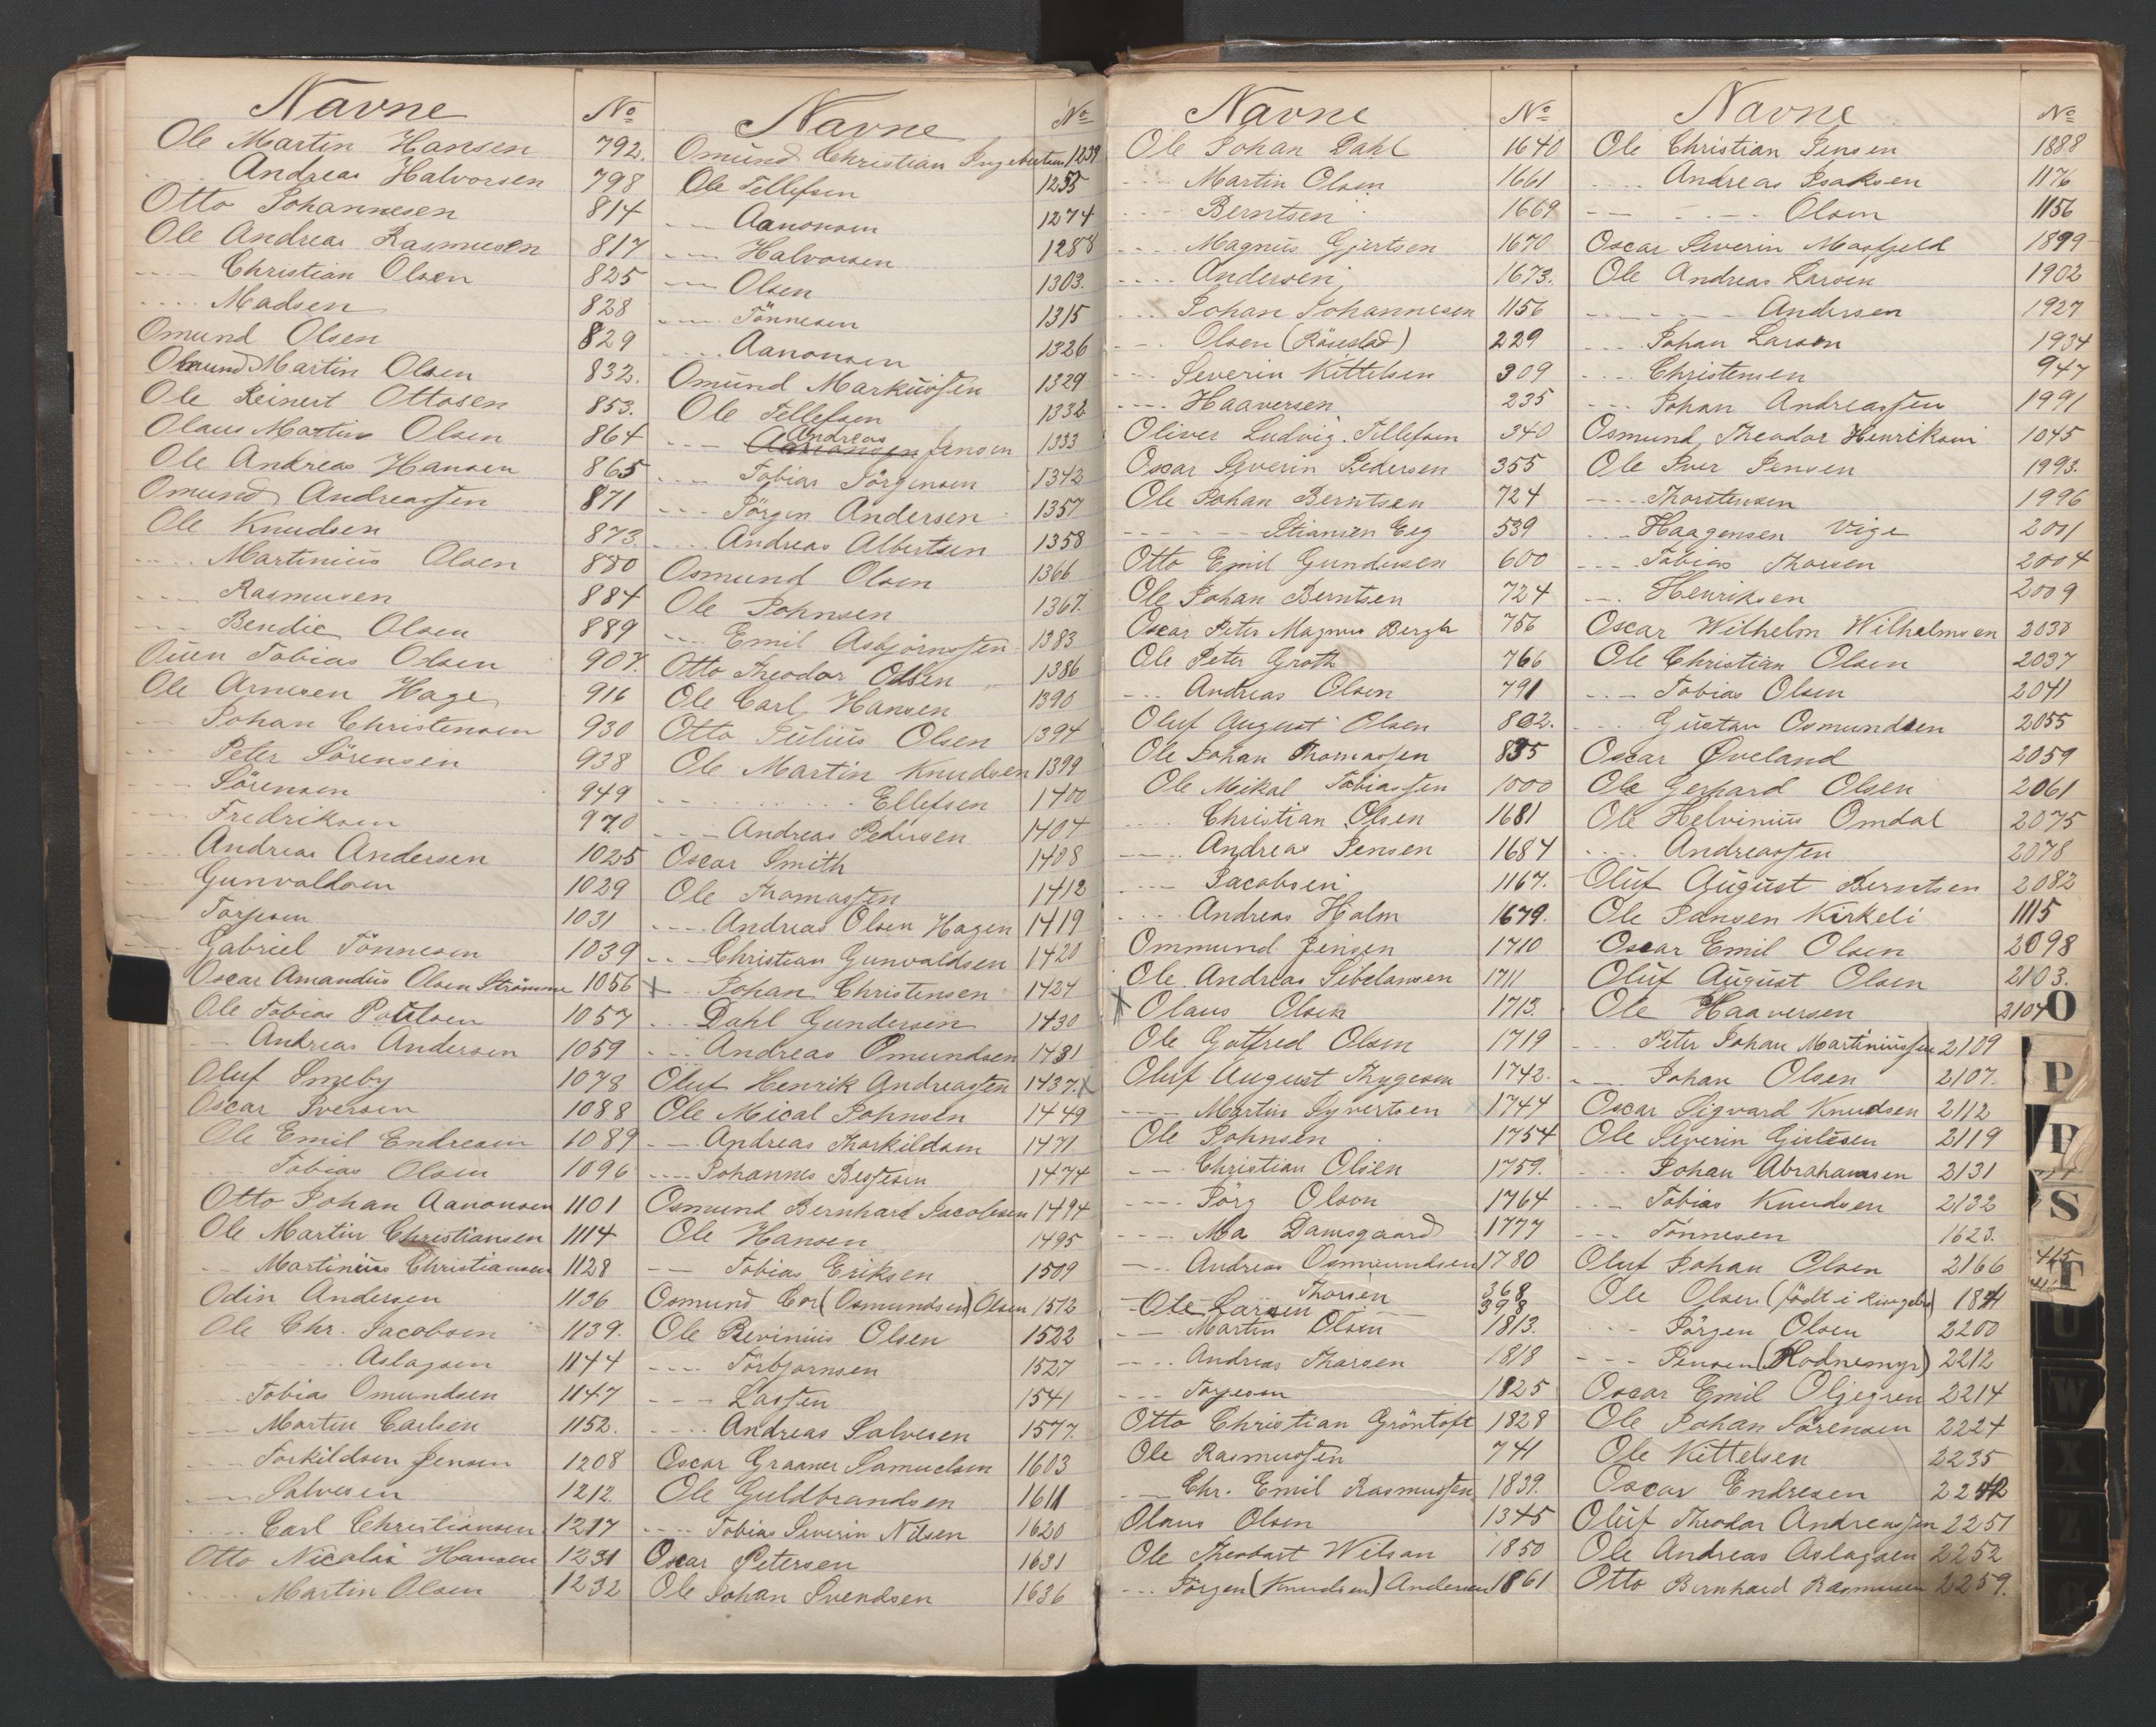 Navne No
Ole Martin Hansen 792.
.... Andreas Halvorsen 798
Otto Johannesen 814
Ole Andreas Rasmusen 817
---- Christian Olsen 825
.... Madsen 828
Omund Olsen 829
Omund Martin Olsen 832.
Ole Reinert Ottosen 853.
Olaus Martin Olsen 864
Ole Andreas Hansen 865
Omund Andreassen 871
Ole Knudsen 873.
.... Martinius Olsen 880
---- Rasmusen 884
--- Bendic Olsen 889
Ouen Tobias Olsen 907.
Ole Arnesen Hage 916
--- Johan Christensen 930
--- Peter Sörensen 938
--- Sörensen 949
--- Fredriksen 970
--- Andreas Andersen 1025
--- Gunvaldsen 1029
--- Torjesen 1031
--- Gabriel Tönnesen 1039
Oscar Amandus Olsen Strömme 1056
Ole Tobias Poulsen 1057
--- Andreas Andersen 1059
Oluf Smeby 1078
Oscar Iversen 1088
Ole Emil Endresen 1089
--- Tobias Olsen 1096
Otto Johan Aanonsen 1101
Ole Martin Christiansen 1114
--- Martinius Christiansen 1128
Odin Andersen 1136
Ole Chr. Jacobsen 1139.
---- Aslagsen 1144
... Tobias Omundsen 1147
--- Martin Carlsen 1152.
--- Torkildsen Jensen 1208
--- Salvesen 1212.
.... Carl Christiansen 1217
Otto Nicolai Hansen 1231
.... Martin Olsen 1232
Navne No
Omund Christian Ingebertsen 1239
Ole Tellefsen 1255
--- Aanonsen 1274
--- Halvorsen 1288
--- Olsen 1303.
--- Tönnesen 1315
.... Aanonsen 1326
Omund Markussen 1329
Ole Tellefsen 1332
--- Andreas Jensen 1333
--- Tobias Jörgensen 1342
--- Jörgen Andersen 1357
--- Andreas Albertsen 1358
Osmund Olsen 1366
Ole Johnsen 1367.
--- Emil Asbjörnssen 1383
Otto Theodor Olsen 1386
Ole Carl Hansen 1390
Otto Julius Olsen 1394
Ole Martin Knudsen 1399
--- ..... Ellefsen 1400
--- Andreas Pedersen 1404
Oscar Smith 1408
Ole Thomassen 1412
--- Andreas Olsen Hagen 1419
--- Christian Gunvaldsen 1420
x -- Johan Christensen 1424
--- Dahl Gundersen 1430
--- Andreas Omundsen 1431
Oluf Henrik Andreassen 1437.x
Ole Mical Johnsen 1449
-- Andreas Thorkildsen 1471
---- Johannes Bessesen 1474
Osmund Bernhard Jacobsen 1494
Ole Hansen 1495
-- Tobias Eriksen 1509
Osmund Cor (Osmundsen) Olsen 1512
Ole Bevinius Olsen 1522
---- Torbjornsen 1527
--- Lassen 1541
.... Andreas Salvesen 1577.
Oscar Graaner Samuelsen 1603
Ole Guldbrandsen 1611
.... Tobias Severin Nilsen 1620
Oscar Petersen 1631
Ole Johan Svendsen 1636
Navne No
Ole Johan Dahl 1640
--- Martin Olsen 1661
.... Berntsen 1669
.... Magnus Gjertsen 1670
.... Andersen 1673.
... Johan Johannesen 1156
--- Olsen (Röseslad) 229
--- Severin Kittelsen 309
---- Haaversen 235
Oliver Ludvig Tellefsen 340
Oscar Severin Pedersen 355
Ole Johan Berntsen 724
--- --- Stiansen Eeg 539
Otto Emil Gundersen 600
Ole Johan Berntsen 724
Oscar Peter Magnus Bergh 756
Ole Peter Groth 766
--- Andreas Olsen 791
Oluf August Olsen 802.
Ole Johan Thomassen 835
Ole Mikal Tobiassen 1000
.... Christian Olsen 1681
---- Andreas Jensen 1684
.--- Jacobsen 1167.
.... Andreas Holm 1679.
Ommund Jensen 1710
Ole Andreas Sibelansen 1711
x Olaus Olsen 1713.
Ole Gotfred Olsen 1719
Oluf August Thygesen 1742.
--- Martin Syvertsen 1744
Ole Johnsen 1754
--- Christian Olsen 1759.
--- Jörg Olson 1764
---- Ma Damsgaard 1777
--- Andreas Osmundsen 1780
Thorsen 368
Ole Larsen 398
--- Martin Olsen 1813.
--- Andreas Thorsen 1818
--- Torjesen 1825
Otto Christian Gröntoft 1828
Ole Rasmussen 741
--- Chr. Emil Rasmussen 1839.
Olaus Olsen 1345
Ole Theobart Wilson 1850
--- Jörgen (Knudsen) Andersen 1861
Navne No
Ole Christian Jensen 1888
.... Andreas Isaksen 1176
--- --- Olsen 1156
Oscar Severin Mosfjeld 1899
Ole Andreas Larsen 1902
--- --- Andersen 1927
--- Johan Larsen 1934
--- Christensen 947
--- Johan Andreassen 1991
Osmund Theodor Henriksen 1045
Ole Iver Jensen 1993.
---- Thorstensen 1996
--- Haagensen Vige 2001
--- Tobias Thorsen 2004
--- Henriksen 2009
Oscar Wilhelm Wilhelmsen 2030
Ole Christian Olsen 2037
--- Tobias Olsen 2041
... Gustav Osmundsen 2055
Oscar Øveland 2059
Ole Gerhard Olsen 2061
Ole Helvinius Omdal 2075
.... Andreassen 2078
Oluf August Berntsen 2082
Ole Jansen Kirkeli 1115
Oscar Emil Olsen 2098
Oluf August Olsen 2103.
Ole Haaversen 2104
--- Peter Johan Martiniussen 2109
--- Johan Olsen 2107.
Oscar Sigvard Knudsen 2112
Ole Severin Gislesen 2119
--- Johan Abrahamsen 2131
--- Tobias Knudsen 2132
--- Tönnesen 1623.
Oluf Johan Olsen 2166
Ole Olsen (födt i 1841
--- Jörgen Olsen 2200
--- Jensen (Hodnemyr) 2212
Oscar Emil Oljegren 2214
Ole Johan Sörensen 2224
Ole Kittelsen 2235
Oscar Endresen 2242
Oluf Theodor Andreassen 2251
Ole Andreas Aslagsen 2252
Otto Bernhard Rasmusen 2259.
O
P
R
S
T
U
W
X